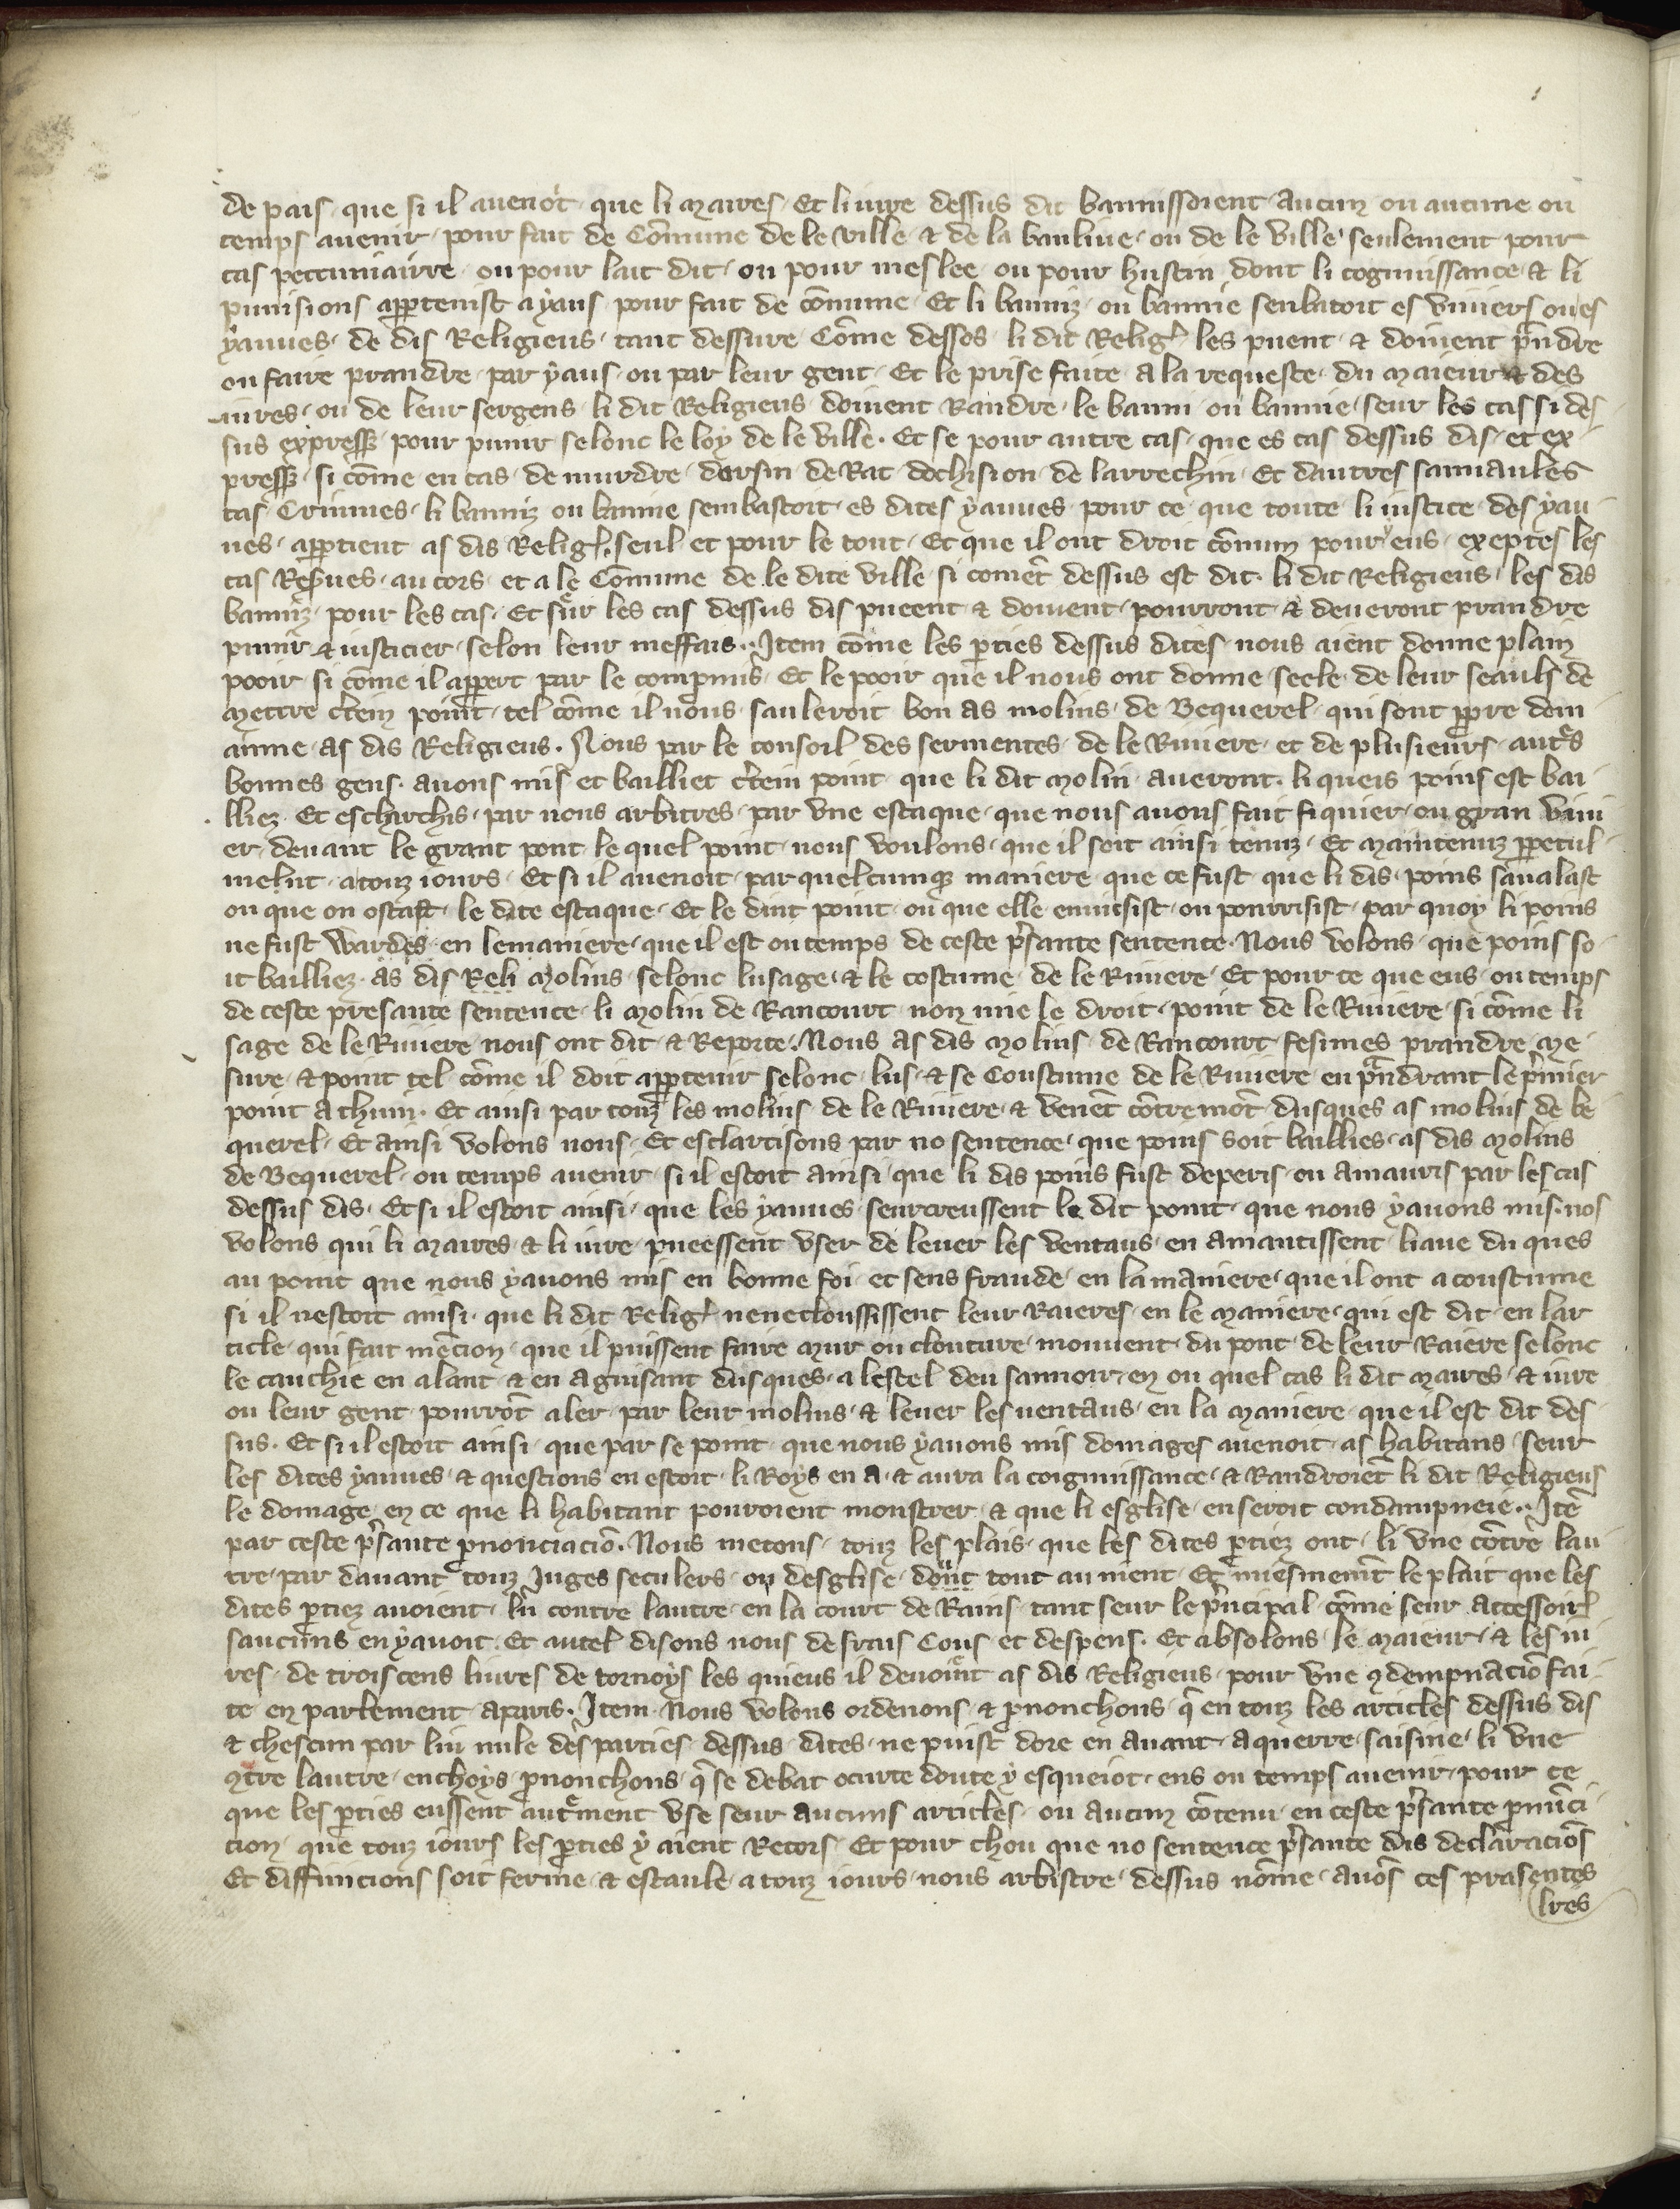 de pais que si il auenoit que li maires Et li iure dessus dit bannissoient aucun ou aucune ou
temps auenir pour fait de Cōmune de le ville & de la banliue ou de le ville seulement pour
cas peccuniairre ou pour lait dit ou pour meslee ou pour hustin dont li cognissance & li
punisions apptenist a yaus pour fait de cōmune Et li banniz ou bannie senbatoit es viuiers ou es
yauues de dis Religieus tant dessure Cōme dessos li dit Relig̾ les puent & doiuent p̄ndre
ou faire prandre par yaus ou par leur gent Et le prise faite a la requeste du maieur & des
iures ou de leur sergens li dit Religieus doiuent Randre le banni ou bannie seur les cas si des
sus expressz pour punir selonc le loy de le ville. Et se pour autre cas que es cas dessus dis et ex
pressz si cōme en cas de murdre darsin de Rat dochision de larrechin Et dautres samaules
cas Crimues li banniz ou bannie sembastoit es dites yauues pour ce que toute li iustice des yau
ues apptient as dis Relig̾ seul et pour le tout Et que il ont droit cōmun pour eus exeptes les
cas Res̾ues au cors et a le Cōmune de le dite ville si comēt dessus est dit li dit Religieus les dis
banniz pour les cas Et sur les cas dessus dis pueent & doiuent pourront & deueront prandre
punir & iusticier selon leur meffais. Item cōme les pties dessus dites nous aient donne plain
pooir si cōme il appert par le compmis Et le pooir que il nous ont donne seele de leur seauls de
mettre c̄tem point tel cōme il nous sauleroit bon as molins de Bequerel qui sont ppre dom
ainne as dis Religieus. Nous par le consoil des sermentes de le Riuiere et de plusieurs aut̄s
bonnes gens auons mis et bailliet c̄tein point que li dit molin aueront li queis poins est bai
lliez Et eschirchis par nous arbitres par vne estaque que nous auons fait fiquier ou gran viui
er deuant le grant pont le quel point nous voulons que il soit ainsi tenuz Et maintenuz ppetul
melnt a touz iours Et si il auenoit par quelcumqz maniere que ce fust que li dis poins saualast
ou que on ostast le dite estaque Et le dint point ou que elle enuiesist ou pourrisist par quoy li poins
ne fust wardes en lemaniere que il est ou temps de ceste p̄sante sentence Nous volons que poins so
it bailliez as dis Reli molins selonc lusage & le costume de le Riuiere Et pour ce que ens ou temps
de ceste presante sentence li molin de Rancourt non mie le droit point de le Riuiere si cōme li
sage de le Riuiere nous ont dit & Reporte. Nous as dis molins de Rancourt fesimes prandre me
sure & point tel cōme il doit apptenir selonc lus & se Coustume de le Riuiere en prandrant le p̄mier
point a thun. Et ainsi par touz les molins de le Riuiere & venēt cōtremōt dusques as molins de be
querel Et ainsi volons nous Et esclarcisons par no sentence que poins soit baillies as dis molins
de Bequerel ou temps auenir si il estoit ainsi que li dis poins fust deperis ou amauris par les cas
dessus dis Et si il estoit ainsi que les yauues seurcreussent le dit point que nous y auons mis nos
volons qui li maires & li iure pueessent vser de leuer les ventaus en amantissent liaue du ques
au point que nous y auons mis en bonne foi et sens fraude en la maniere que il ont a coustume
si il nestoit ainsi que li dit Relig̾ neneclousissent leur Raieres en le maniere qui est dit en lar
ticle qui fait mēcion que il puissent faire mur ou clouture mouuent du pont de leur Raiere selonc
le cauchie en alant & en aguisant dusques a lestel deu saunoir en ou quel cas li dit maires & iure
ou leur gent pourrōt aler par leur molins & leuer les uentaus en la maniere que il est dit des
sus. Et si il estoit ainsi que par se point que nous y auons mis domages auenoit as habitans seur
les dites yauues & questions en estoit li Roys en a & aura la coignuissance & Randroiēt li dit Religieus
le domage en ce que li habitant pouroient monstrer & que li esglise en seroit condampneie. Itē
par ceste p̄sante pnonciaciō. Nous metons touz les plais que les dites ptiez ont li vne cōtre lau
tre par dauant touz Juges seculers ou desglise dont tout au nient Et miesmemēt le plait que les
dites ptiez auoient lū contre lautre en la court de Rains tant seur le p̄ncipal cōme seur accessoir̄
saucuns en y auoit. Et autel disons nous de frais Cous et despens. Et absolons le maieur & les iu
res de trois cens liures de tornoys les quieus il deuoiēt as dis Religieus pour vne 9dempnaciō fai
te en parlement a paris. Item Nous volons ordenons & pnonchons q̄ en touz les articles dessus dis
& chescun par lui nule des parties dessus dites ne puist dore en auant aquerre saisine li vne
9tre lautre enchoys pnonchons q̄ se debat ocurte doute y esqueiot ens ou temps auenir pour ce
que les pties eussent aut̄ment vse seur aucuns articles ou aucun cōtenu en ceste p̄sante pnūci
cion que touz iours les pties y aient Recors Et pour chou que no sentence p̄sante dis declaraciōs
Et diffinicions soit ferme & estaule a touz iours nous arbistre dessus nōme auōs ces prasentes
lres